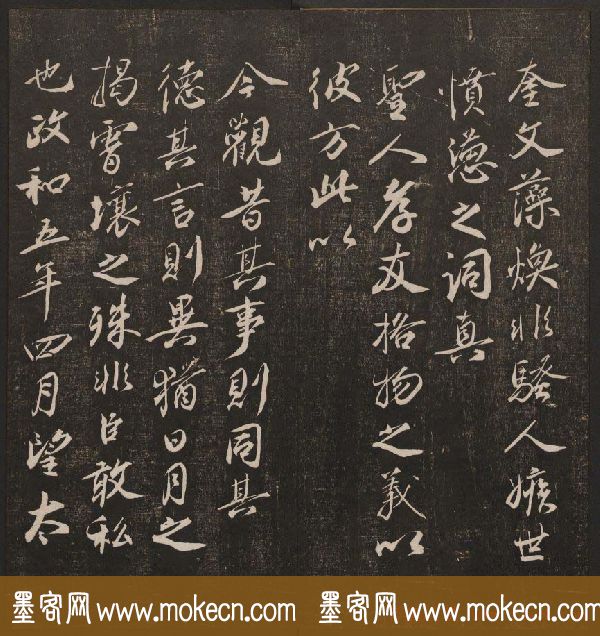 奎文藻煥非騷人嫉世
憤懣之詞真
聖人孝友格物之義以
彼方此以
今觀昔其事則同其
德其言則異猶日月之
揭霄壤之殊非臣敢私
也政和五年四月望太
墨客网 www.mokecn.com 墨客网 www.mokecn.com